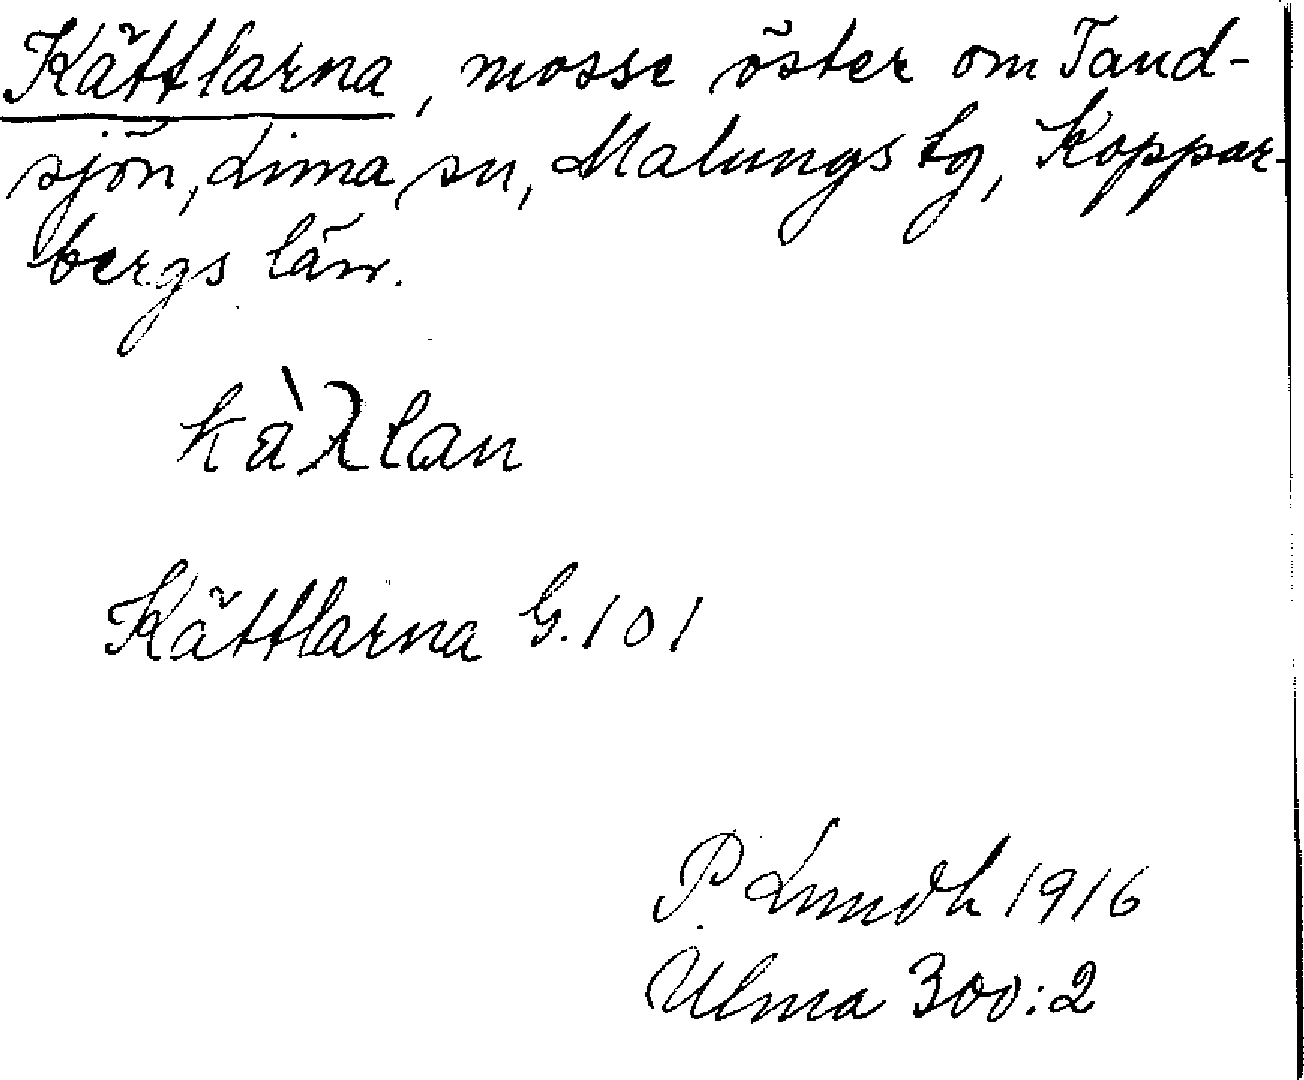 Kättlarna, mosse öster om Tand-
sjön, Lima sn, Malungs tg, Koppar-
bergs län.
kàλlan
Kättlarna G.101
P. Lundh 1916
Ulma 300:2